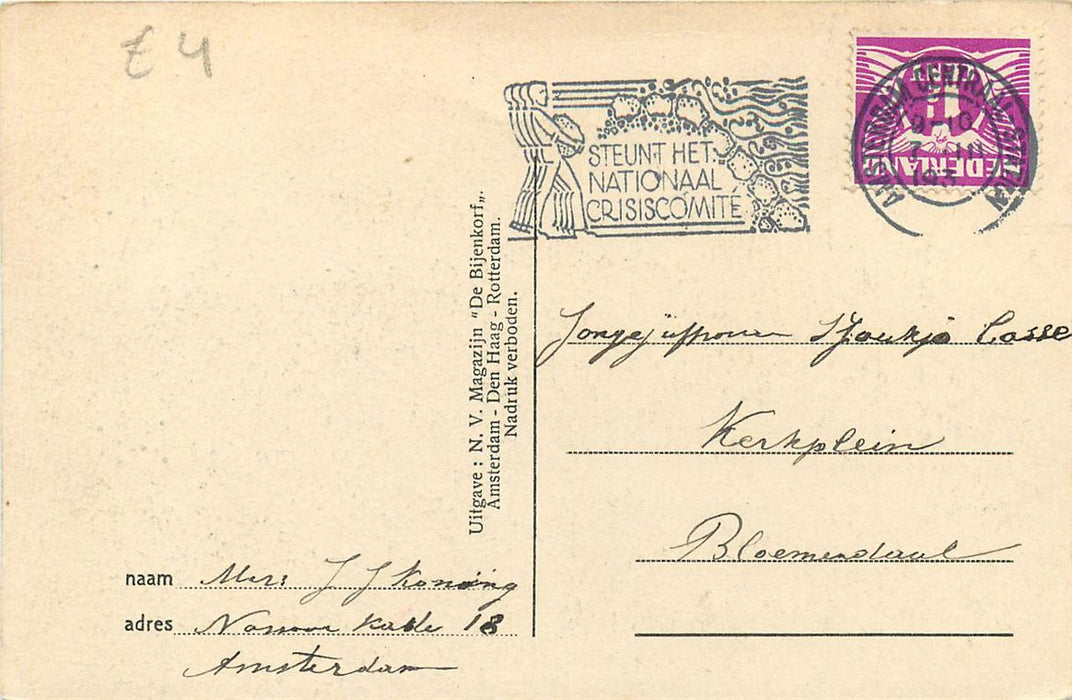 £ 4
STEUNT HET
NATIONAAL
CRISISCOMITÉ
AMSTERDAM CENTRAAL STATION
9-10
7 III
193
NEDERLAND
CENT
Uitgave : N. V. Magazijn "De Bijenkorf„,
Amsterdam - Den Haag - Rotterdam.
Nadruk verboden.
Jongejuffrouw Sjoukje Casse
Kerkplein
Bloemendaal
naam J J Koning
adres Kade 18
Amsterdam